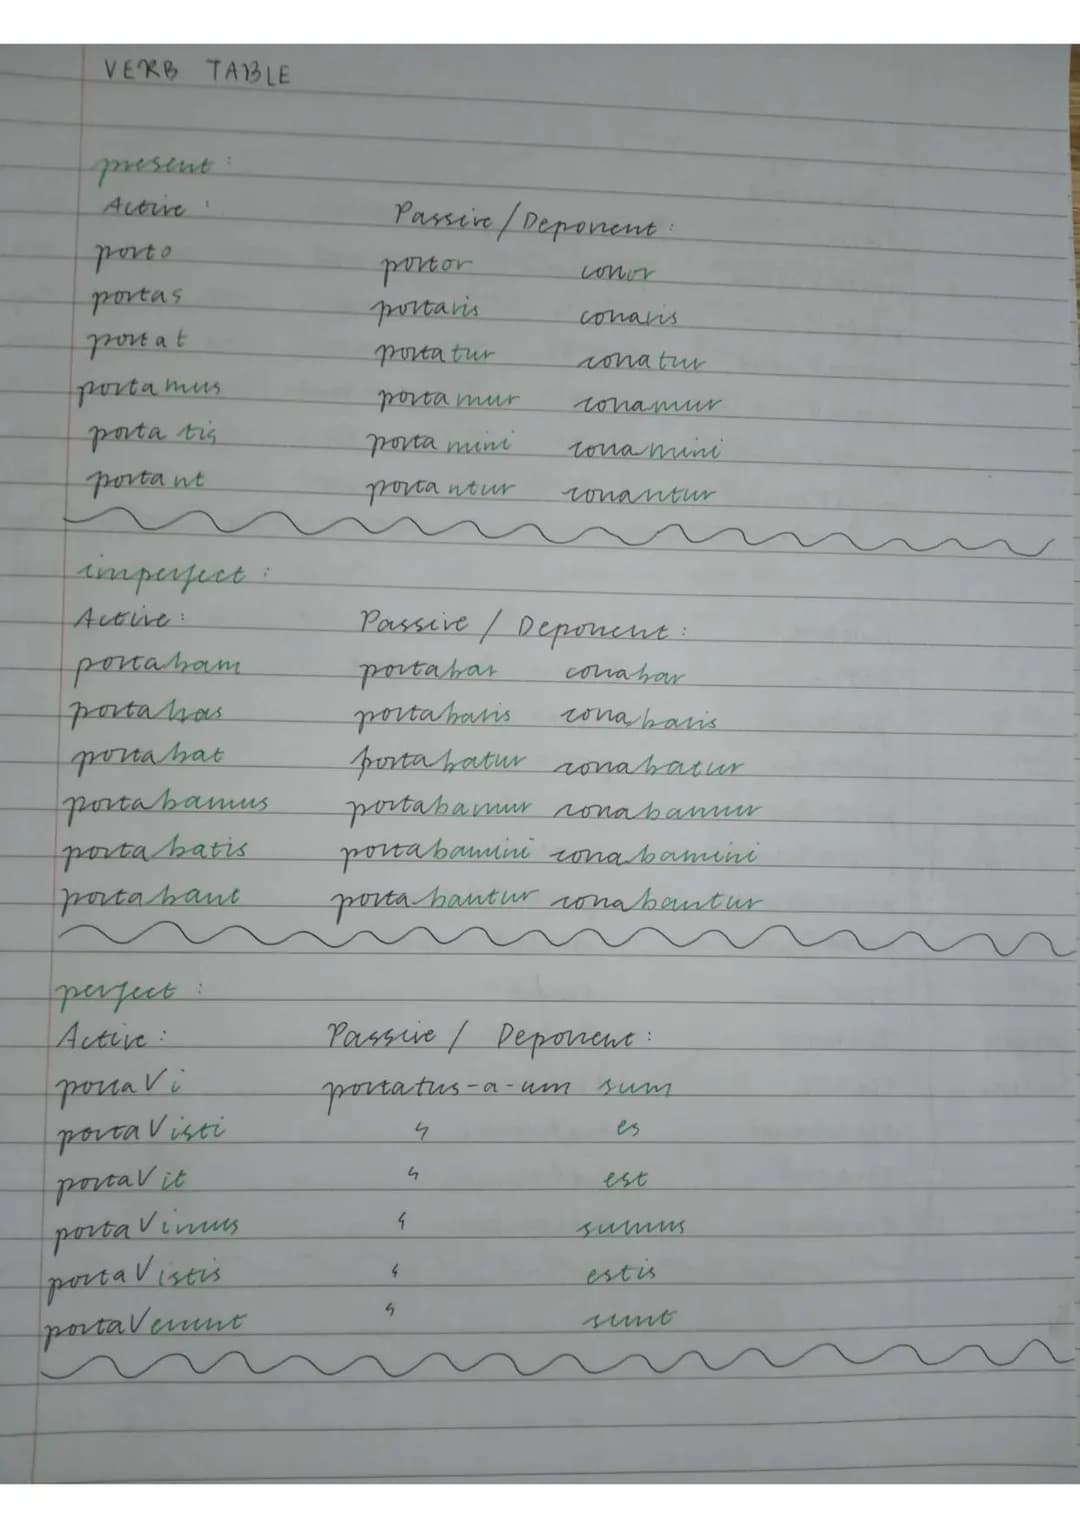 VERB TABLE
present:
Active: Passive/Deponent:
porto portor conor
portas portaris conaris
portat portatur conatur
portamus portamur conamur
portatis portamini conamini
portant portantur conantur
imperfect:
Active: Passive / Deponent:
portabam portabar conabar
portabas portabaris conabaris
portabat portabatur conabatur
portabamus portabamur conabamur
portabatis portabamini conabamini
portabant portabantur conabantur
perfect:
Active: Passive / Deponent:
portaVi portatus-a-um sum
portaVisti " es
portaVit " est
portaVimus " sumus
portaVistis " estis
portaVerunt " sunt